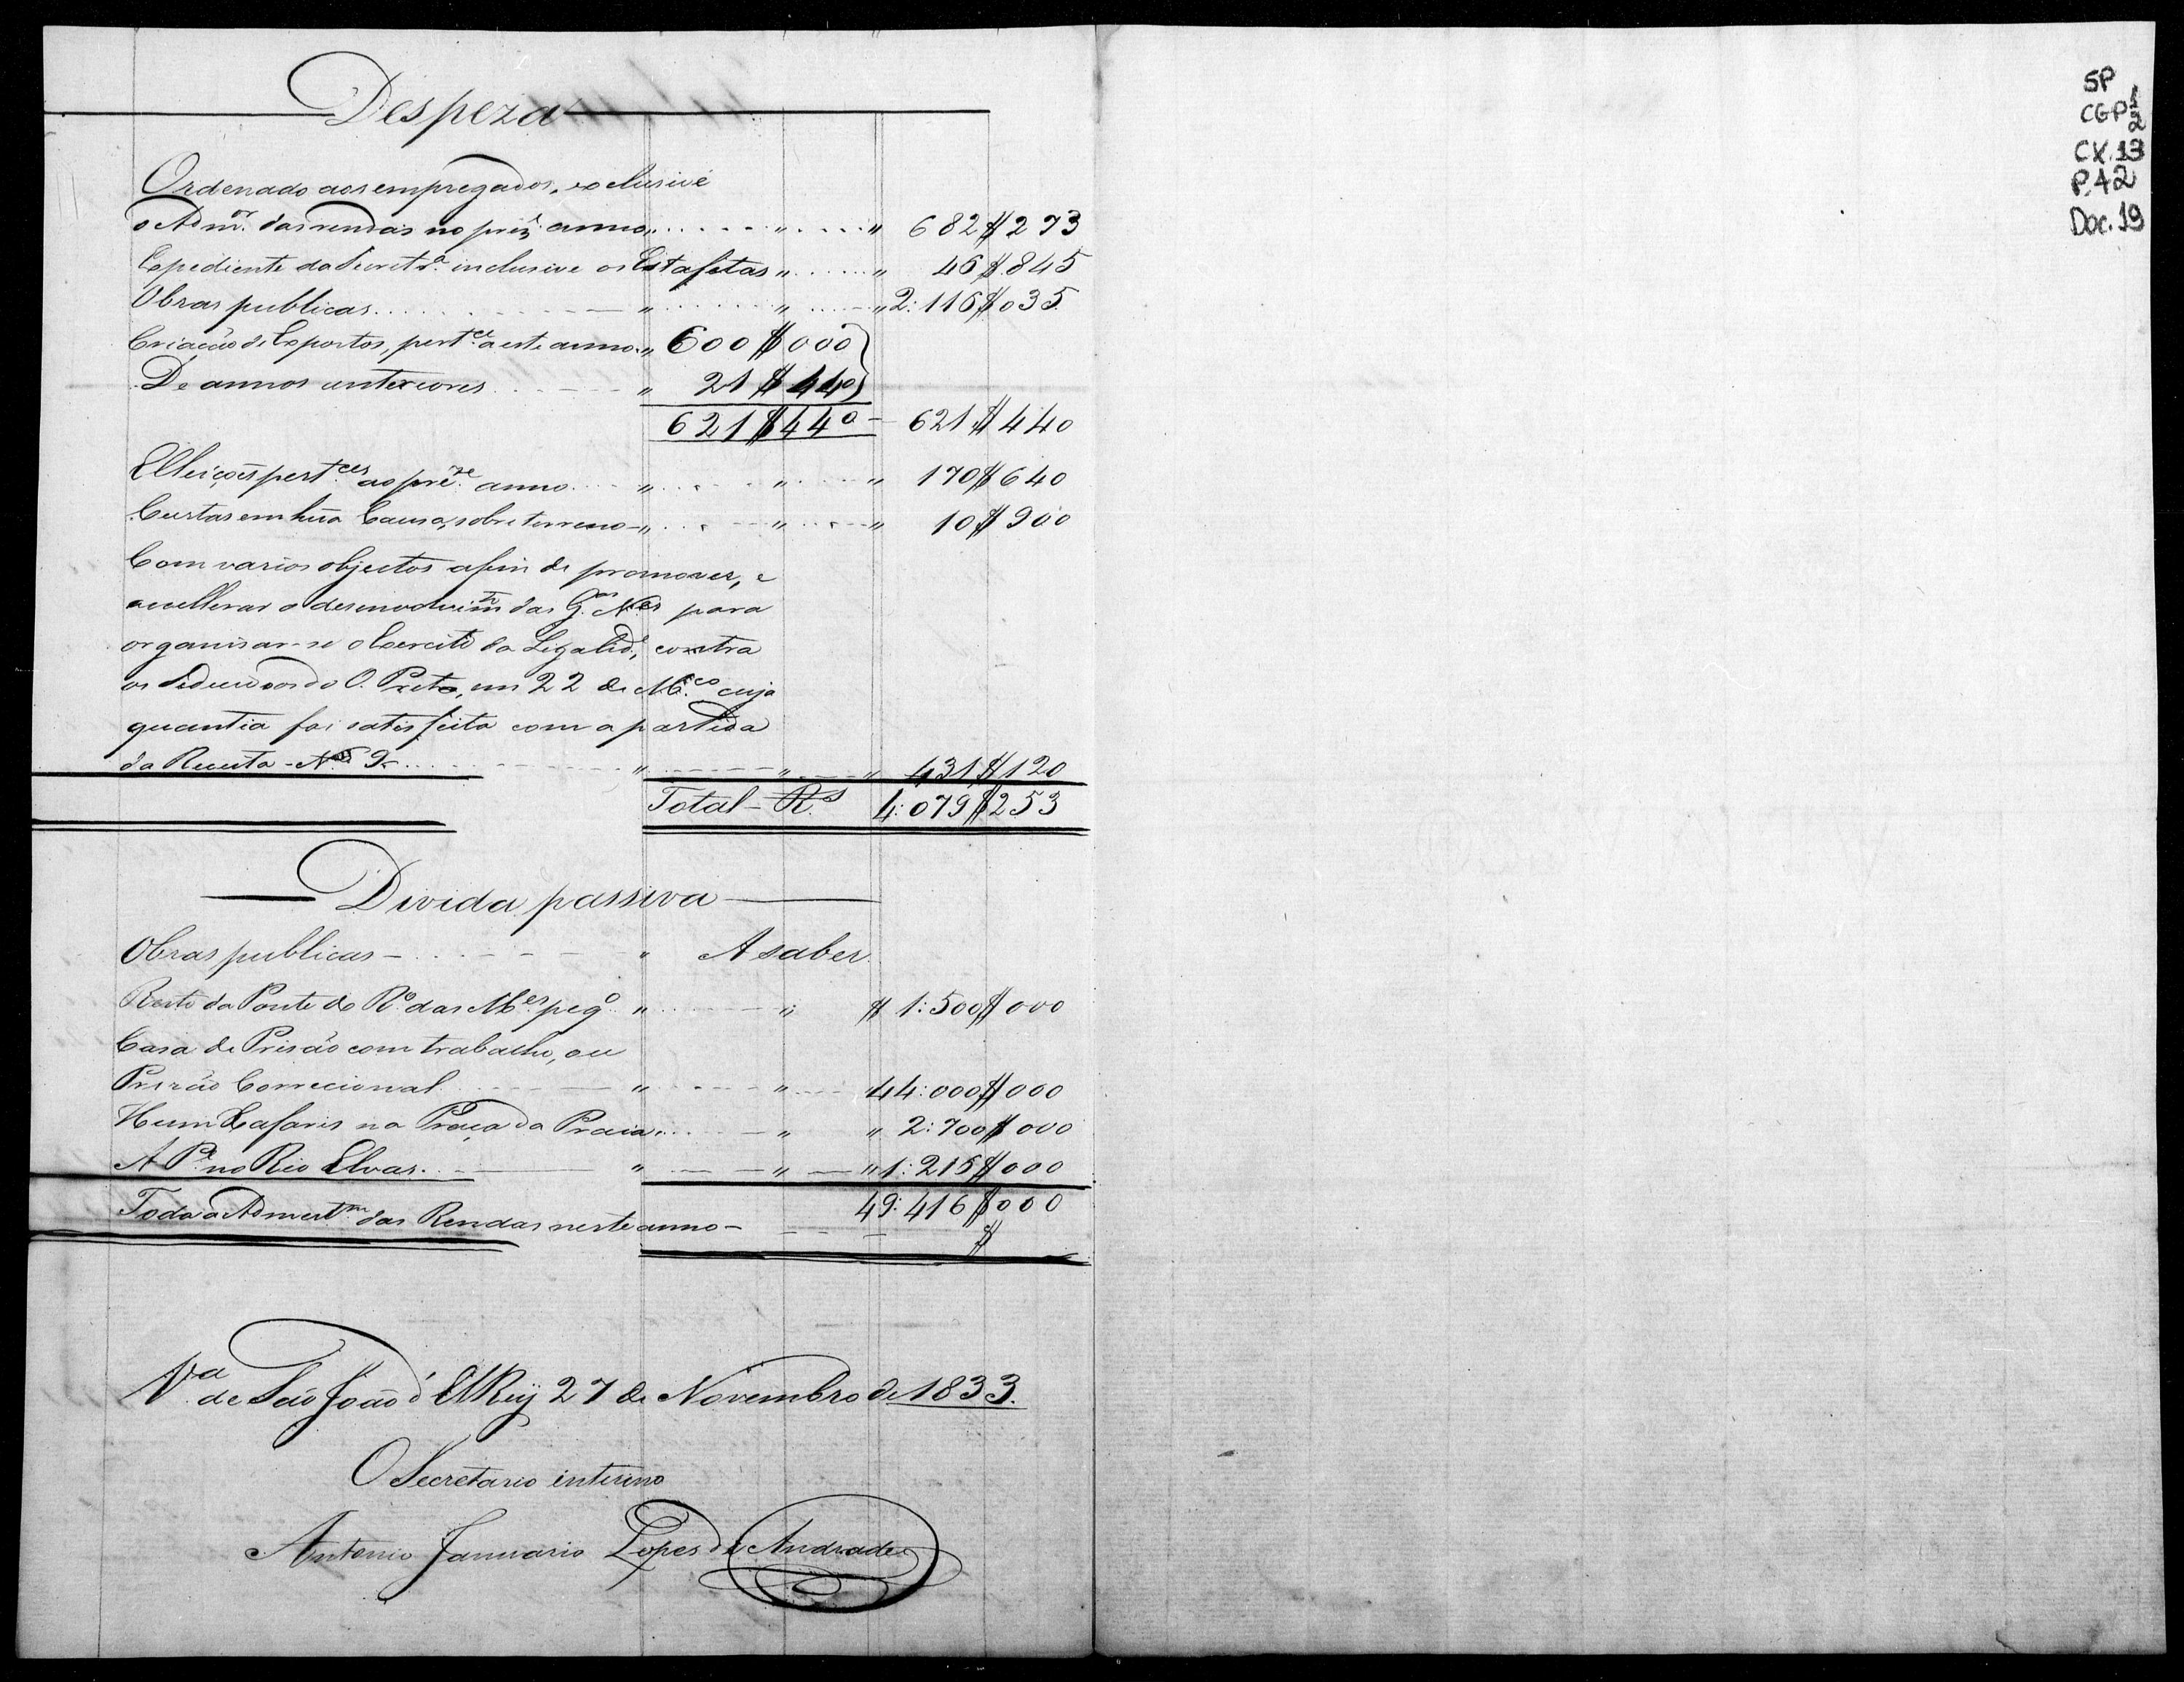 Despeza
Ordenado aos empregados, exclusive
o Adm.or das rendas no prez.e anno 682$273
Expediente da Secret.a inclusive os Estafetas 46$845
Obras publicas 2:116$035
Criação de Expostos, pert.ce a este anno 600$000
De annos anteriores 21$440
621$440 – 621$440
Elleiçoes pert.ces ao prez.e anno 170$640
Custas em hũa Causa, sobre terreno 10$900
Com varios objectos afim de promover, e
accellerar o desenvolvim.to das G.as N.es para
organisar-se o Exercito da Legalid.e, contra
os Sediciosos do O. Preto, em 22 de M.ço cuja
quantia foi satisfeita com a partida
da Receita - N.o 9 431$120
Total – R.s 4:079$253
Divida passiva
Obras publicas – A saber
Resto da Ponte do R.o das M.es peq.o $ 1:500$000
Casa de Prisão com trabalho, ou
Prizão Correcional 44:000$000
Hum Xafaris na Praça da Praia 2:700$000
A P.e no Rio Elvas 1:216$000
49:416$000
Toda a Admest.m das Rendas neste anno – $
V.a de São João d'El Rey 27 de Novembro de 1833.
O Secretario interino
Antonio Januario Lopes de Andrade
SP
CGP 1/2
CX.13
P.42
Doc.19